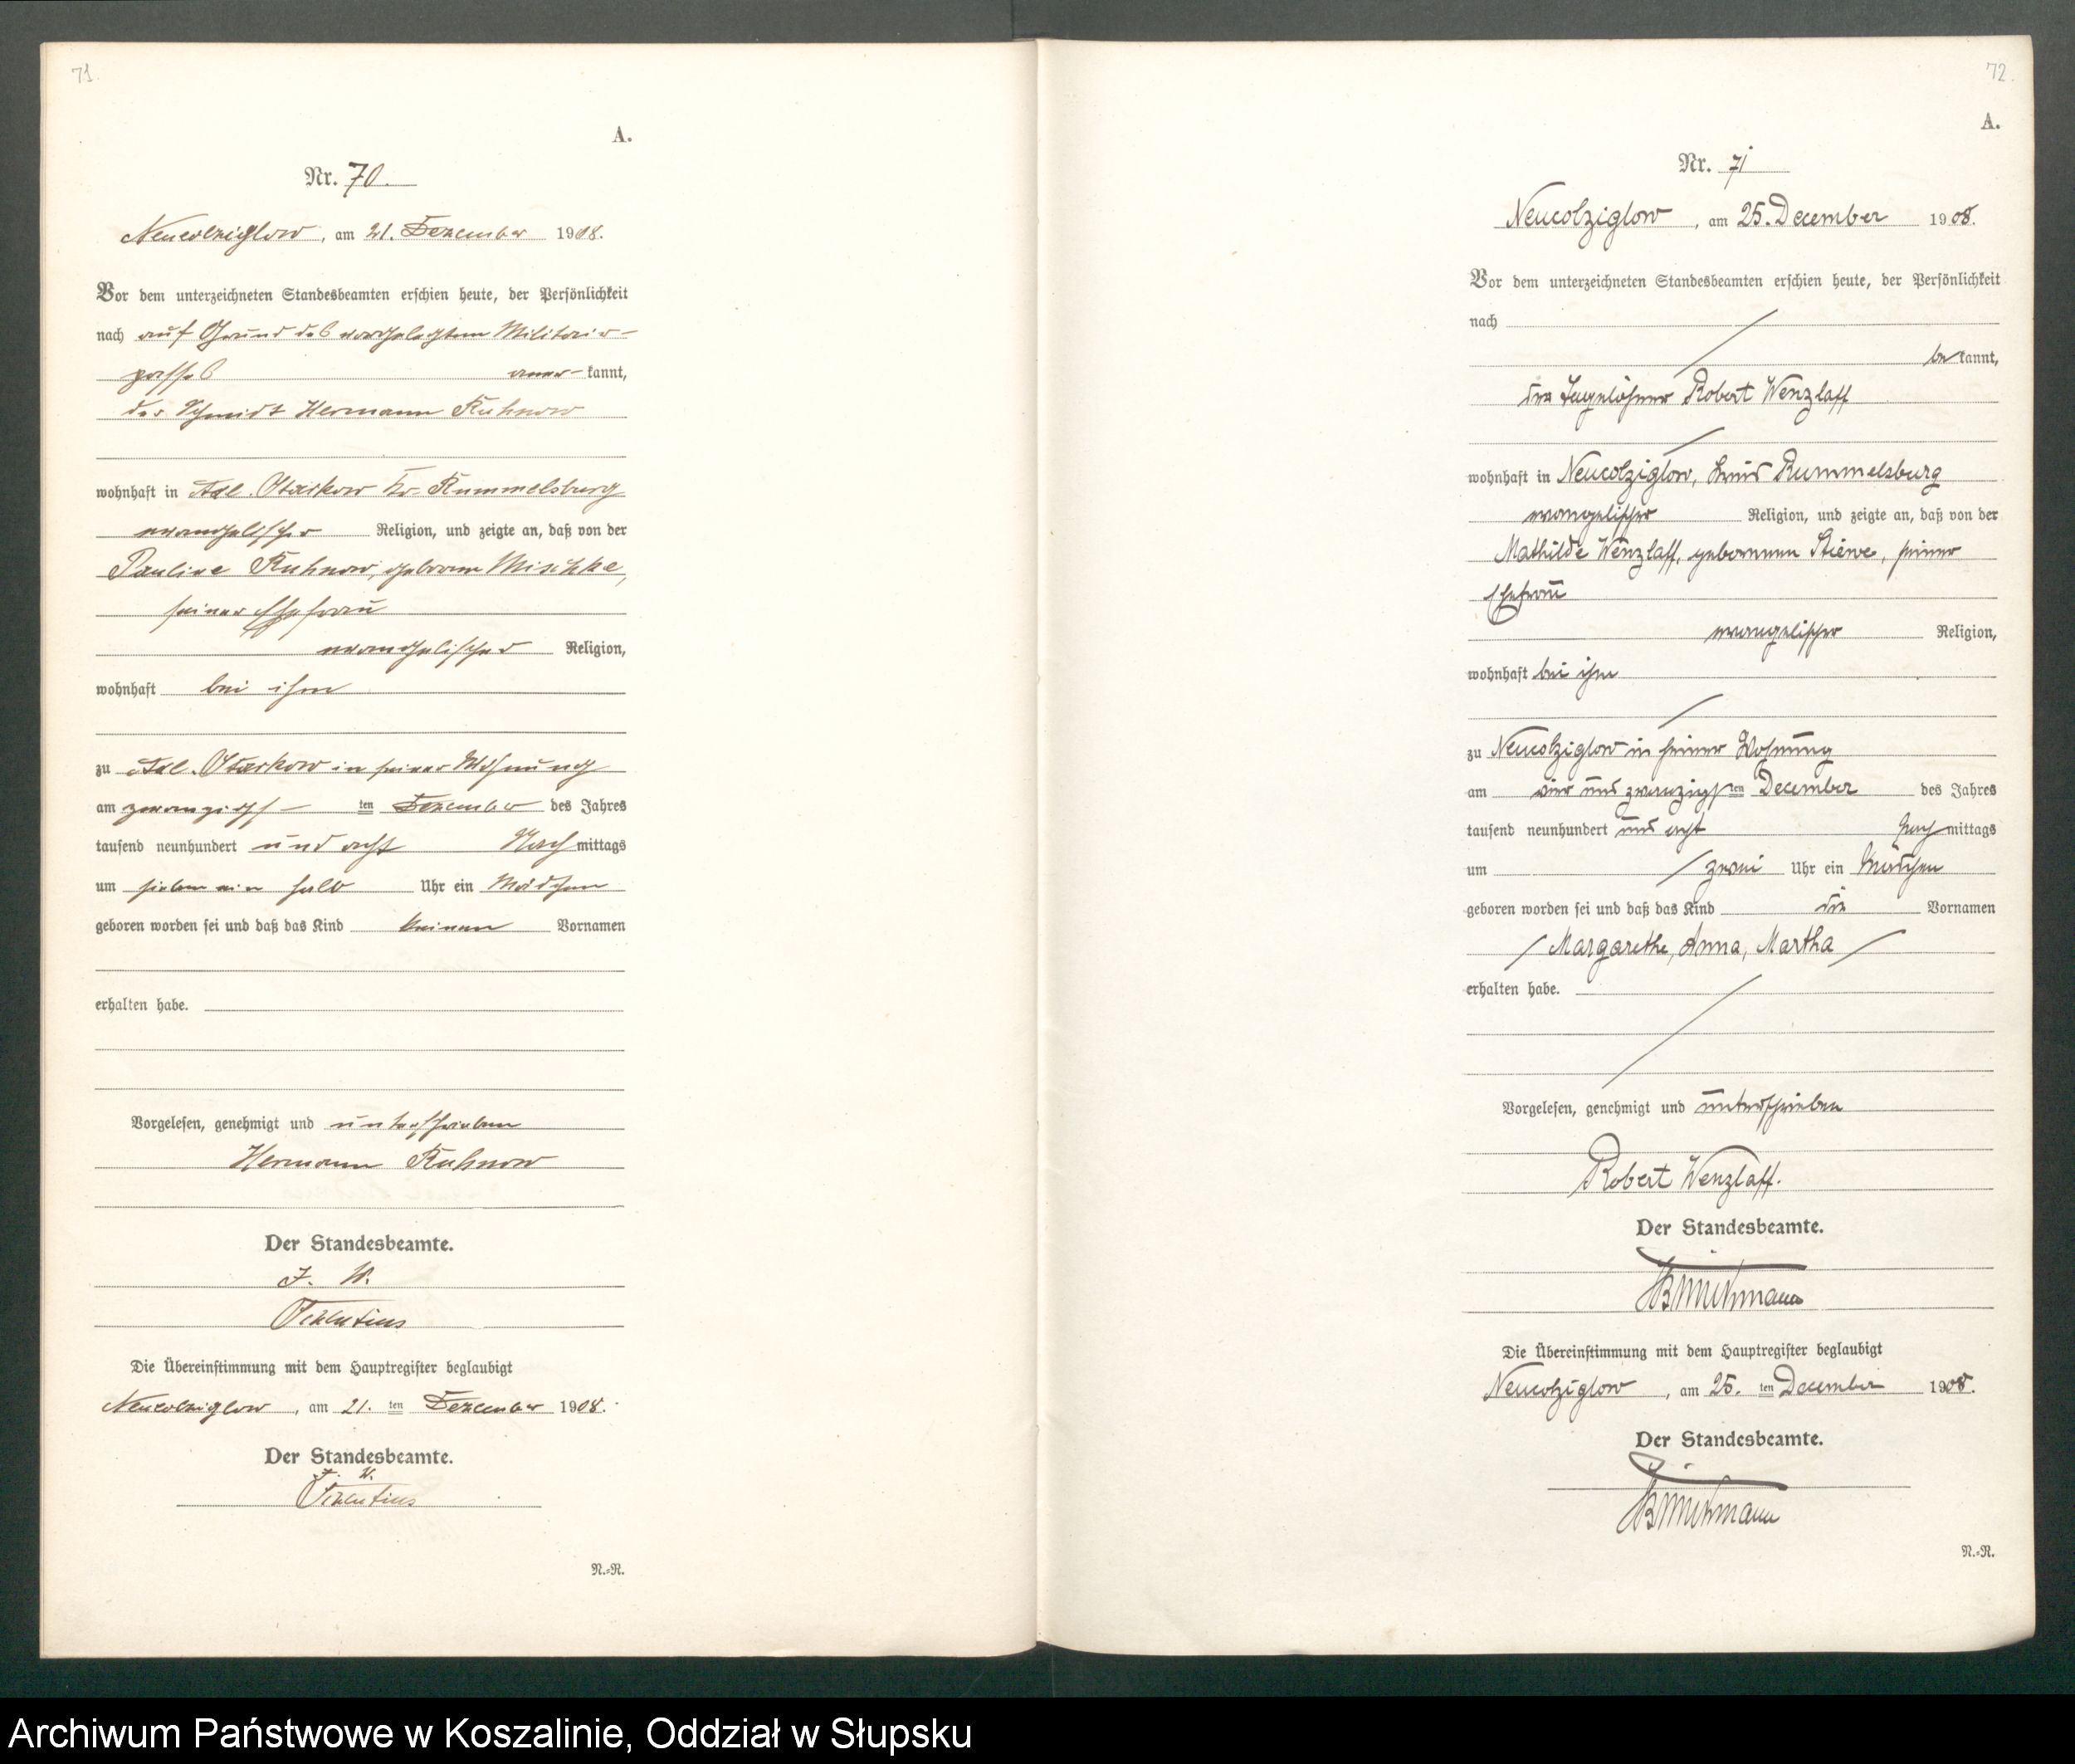 71.
A.
Nr. 70.
Neucolziglow, am 21. Dezember 1908.
Vor dem unterzeichneten Standesbeamten erschien heute, der Persönlichkeit
nach auf Grund des vorgelegten Militair-
passes aner-kannt,
der Schmidt Hermann Kuhnow
wohnhaft in Adl. Kr. Rummelsburg
evangelischer Religion, und zeigte an, daß von der
Pauline Kuhnow, geboren Mischke,
seiner Ehefrau
evangelischer Religion,
wohnhaft bei ihm
zu Adl. in seiner Wohnung
am zwanzigs- ten Dezember des Jahres
tausend neunhundert und acht Nachmittags
um sieben ein halb Uhr ein Mädchen
geboren worden sei und daß das Kind keinen Vornamen
erhalten habe.
Vorgelesen, genehmigt und unterschrieben
Hermann Kuhnow
Der Standesbeamte.
J. V.
Die Übereinstimmung mit dem Hauptregister beglaubigt
Neucolziglow, am 21. ten Dezember 1908.
Der Standesbeamte.
J. V.
N.=N.
72.
A.
Nr. 71
Neucolziglow, am 25. December 1908.
Vor dem unterzeichneten Standesbeamten erschien heute, der Persönlichkeit
nach
bekannt,
der Tagelöhner Robert Wenzlaff
wohnhaft in Neucolziglow, Kreis Rummelsburg
evangelischer Religion, und zeigte an, daß von der
Mathilde Wenzlaff, geborenen Stiewe, seiner
Ehefrau
evangelischer Religion,
wohnhaft bei ihm
zu Neucolziglow in seiner Wohnung
am vier und zwanzigsten December des Jahres
tausend neunhundert und acht Nachmittags
um zwei Uhr ein Mädchen
geboren worden sei und daß das Kind die Vornamen
Margarethe, Anna, Martha
erhalten habe.
Vorgelesen, genehmigt und unterschrieben
Robert Wenzlaff.
Der Standesbeamte.
Die Übereinstimmung mit dem Hauptregister beglaubigt
Neucolziglow, am 25. ten December 1908.
Der Standesbeamte.
N.=N.
Archiwum Państwowe w Koszalinie, Oddział w Słupsku